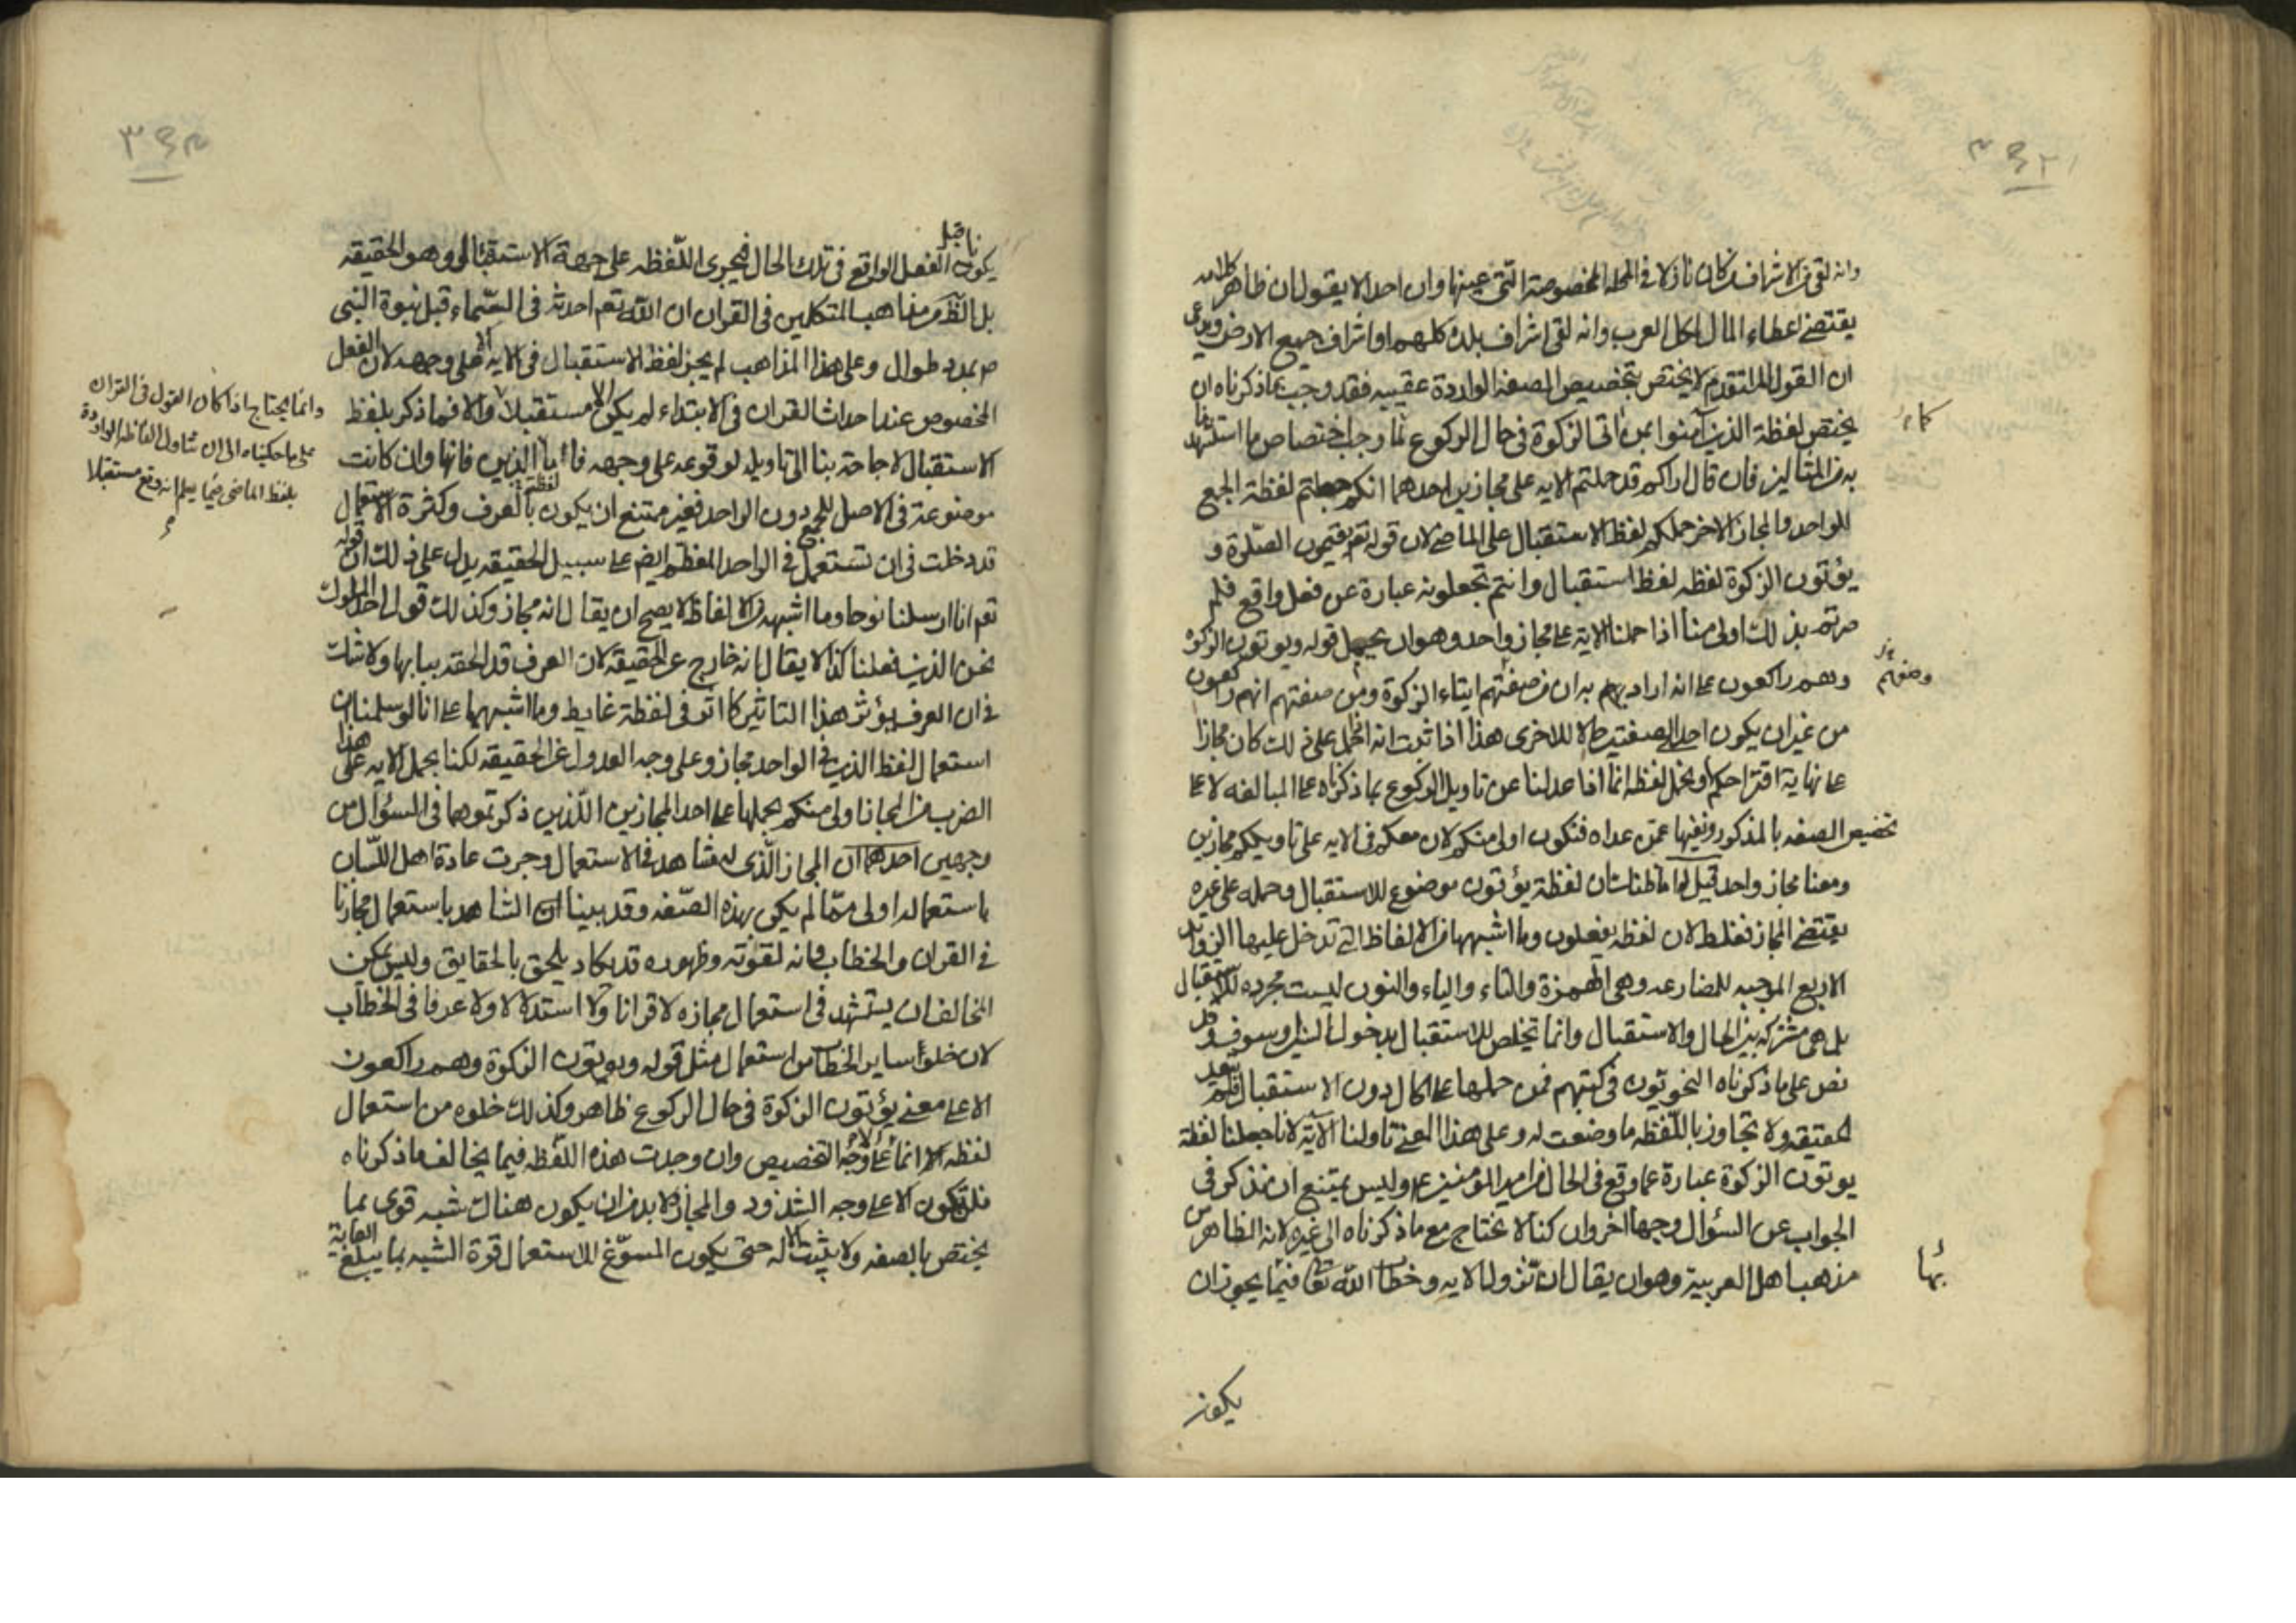 وانه لقى الاشراف وكان نازلا فى المحله المخصوصة التى عينها وان احدا لا يقول ان ظاهر كلامه
يقتضى اعطاء المال لكل العرب وانه لقى اشراف بلده كلهم او اشراف جميع الارض ويدعى
ان القول المتقدم لا يختص بتخصيص الصفة الواردة عقيبه فقد وجب بما ذكرناه ان
يختص لفظة الذين آمنوا بمن اتى الزكوة فى حال الركوع كما وجب اختصاص ما استشهدنا
به من المثالين فان قال اراكم قد حملتم الايه على مجازين احدهما انكم جعلتم لفظة الجمع
للواحد والمجاز الاخر حملكم لفظ الاستقبال على الماضى لان قوله تعم يقيمون الصلوة و
يؤتون الزكوة لفظه لفظ استقبال وانتم تجعلونه عبارة عن فعل واقع فلم
صرتم بذلك اولى منا اذا حملنا الاية على مجاز واحد وهو ان يحمل قوله ويوتون الزكوة
وهم راكعون على انه اراد به ان من صفتهم ايتاء الزكوة ومن صفتهم انهم راكعون
من غير ان يكون احدى الصفتين حالا للاخرى هذا اذا ثبت انه اذا حمل على ذلك كان مجازا
على نهاية اقتراحكم ونحمل لفظه انما اذا عدلنا عن تاويل الركوع بما ذكرناه على المبالغه لا على
تخصيص الصفه بالمذكور ونفيها عمن عداه فنكون اولى منكم لان معكم فى الايه على تاويلكم مجازين
ومعنا مجاز واحد قيل له اما ظنك ان لفظة يؤتون موضوع للاستقبال وحمله على غيره
يقتضى المجاز فغلط لان لفظه يفعلون وما اشبهها من الالفاظ التى تدخل عليها الزوايد
الاربع الموجبه للمضارعه وهى الهمزة والتاء والياء والنون ليست مجرده للاستقبال
بل هى مشتركه بين الحال والاستقبال وانما تخلص للاستقبال بدخول السين او سوف وقد
نص على ما ذكرناه النحويون فى كتبهم فمن حملها على الحال دون الاستقبال فلم يتعد
الحقيقه ولا تجاوز باللفظه ما وضعت له وعلى هذا المعنى تاولنا الآية لانا جعلنا لفظة
يوتون الزكوة عبارة عما وقع فى الحال من امير المؤمنين ع وليس يمتنع ان نذكر فى
الجواب عن السؤال وجها اخر وان كنا لا نحتاج مع ما ذكرناه الى غيره لانه الظاهر من
مذهب اهل العربية وهو ان يقال ان نزول الايه وخطاب الله تعا فيما يجوز ان
وصفهم
بها
يكون
يكونا قبل الفعل الواقع فى تلك الحال فيجرى اللفظه على جهة الاستقبال وهو الحقيقه
بل الظاهر من مذاهب المتكلمين فى القران ان الله تعم احدثه فى السماء قبل نبوة النبى
ص بمدد طوال وعلى هذا المذاهب لم يجز لفظ الاستقبال فى الايه الا على وجهه لان الفعل
المخصوص عند احداث القران فى الابتداء لم يكن الا مستقبلا والا فما ذكر بلفظ
الاستقبال لا حاجة بنا الى تاويله لوقوعه على وجهه فاما لفظة الذين فانها وان كانت
موضوعة فى الاصل للجمع دون الواحد فغير ممتنع ان يكون بالعرف وكثرة الاستعمال
قد دخلت فى ان تستعمل فى الواحد المعظم ايض على سبيل الحقيقه يدل على ذلك ان قوله
تعم انا ارسلنا نوحا وما اشبهه من الالفاظ لا يصح ان يقال انه مجاز وكذلك قول احد الملوك
نحن الذين فعلنا كذا لا يقال انه خارج عن الحقيقة لان العرف قد الحقه ببابها ولا شك
فى ان العرف يؤثر هذا التاثير كما اثر فى لفظة غايط وما اشبهها على انا لو سلمنا ان
استعمال لفظ الذين فى الواحد مجاز وعلى وجه العدول عن الحقيقه لكنا بحمل الايه على هذا
الضرب من المجاز اولى منكم بحملها على احد المجازين اللذين ذكرتموهما فى السؤال من
وجهين احدهما ان المجاز الذى له شاهد فى الاستعمال وجرت عادة اهل اللسان
باستعماله اولى مما لم يكن بهذه الصفه وقد بينا ان الشاهد باستعمال مجازنا
فى القران والخطاب وانه لقوته وظهوره قد يكاد يلحق بالحقايق وليس يمكن
المخالف ان يستشهد فى استعمال مجازه لا قرانا ولا استدلالا ولا عرفا فى الخطاب
لان خلو ساير الخطاب من استعمال مثل قوله ويوتون الزكوة وهم راكعون
الا على معنى يؤتون الزكوة فى حال الركوع ظاهر وكذلك خلوه من استعمال
لفظه انما الا على وجه التخصيص وان وجدت هذه اللفظه فيما يخالف ما ذكرناه
فلن تكون الا على وجه الشذوذ والمجاز لابد من ان يكون هناك شبه قوى بما
يختص بالصفه ولا يثبت الا له حتى يكون المسوغ للاستعمال قوة الشبه بما يبلغ الغاية
وانما يحتاج اذا كان القول فى القران
على ما حكيناه الى ان نتناول الفاظه الواردة
بلفظ الماضى فيما يعلم انه وقع مستقبلا